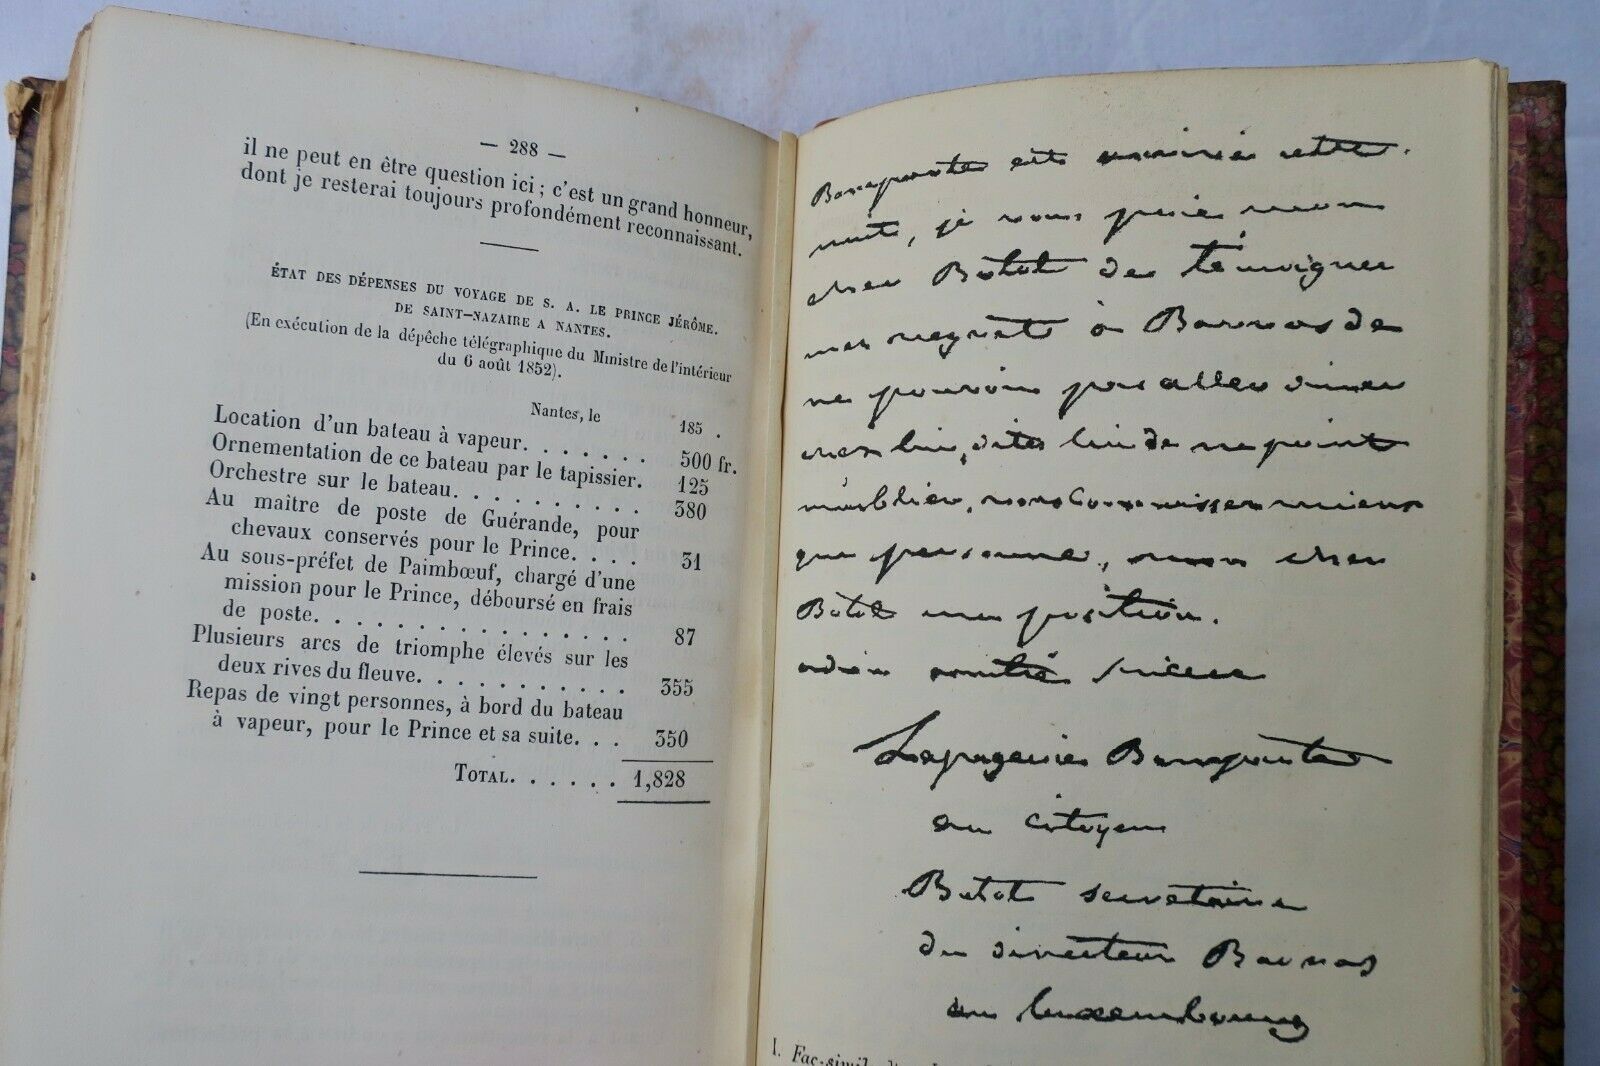 — 288 —
il ne peut en être question ici ; c'est un grand honneur,
dont je resterai toujours profondément reconnaissant.
ÉTAT DES DÉPENSES DU VOYAGE DE S. A. LE PRINCE JÉRÔME.
DE SAINT-NAZAIRE A NANTES.
(En exécution de la dépêche télégraphique du Ministre de l'intérieur
du 6 août 1852).
Nantes, le 185 .
Location d'un bateau à vapeur. . . . . . . 500 fr.
Ornementation de ce bateau par le tapissier. 125
Orchestre sur le bateau. . . . . . . . . . 380
Au maître de poste de Guérande, pour
chevaux conservés pour le Prince. . . . 31
Au sous-préfet de Paimbœuf, chargé d'une
mission pour le Prince, déboursé en frais
de poste. . . . . . . . . . . . . . . . . 87
Plusieurs arcs de triomphe élevés sur les
deux rives du fleuve. . . . . . . . . . . 355
Repas de vingt personnes, à bord du bateau
à vapeur, pour le Prince et sa suite. . . 350
TOTAL. . . . . . 1,828
Bonaparte est arrivé cette
nuit, je vous prie mon
cher Botot de témoigner
mes regrets à Barras de
ne pouvoir pas aller diner
chez lui, dites lui de ne point
m'oublier, vous connoisses mieux
que personne, mon cher
Botot ma position.
adieu amitié sincere
Lapagerie Bonaparte
au citoyen
Botot secretaire
du directeur Barras
au luxembourg
1. Fac-simil